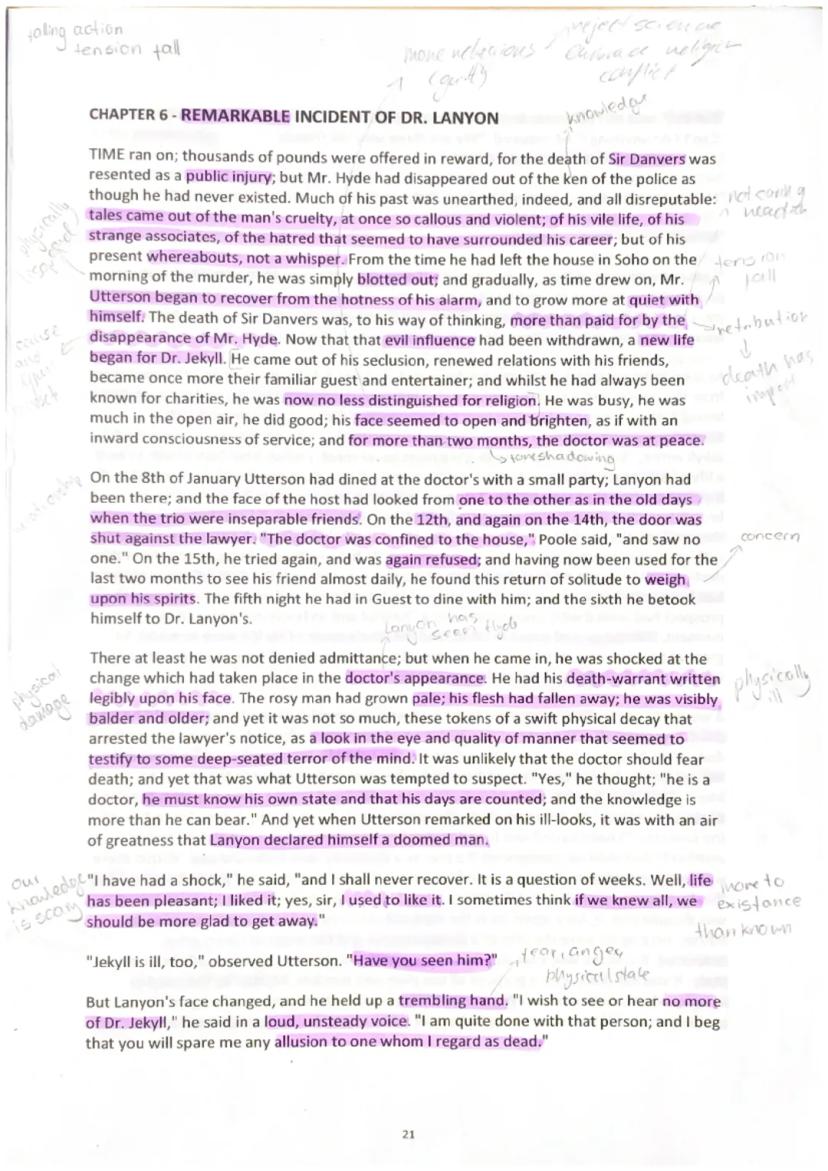 falling action
tension fall
more nefarious
reject science
embrace religion
conflict
knowledge
CHAPTER 6 - REMARKABLE INCIDENT OF DR. LANYON
TIME ran on; thousands of pounds were offered in reward, for the death of Sir Danvers was
resented as a public injury; but Mr. Hyde had disappeared out of the ken of the police as
though he had never existed. Much of his past was unearthed, indeed, and all disreputable:
tales came out of the man's cruelty, at once so callous and violent; of his vile life, of his
strange associates, of the hatred that seemed to have surrounded his career; but of his
present whereabouts, not a whisper. From the time he had left the house in Soho on the
morning of the murder, he was simply blotted out; and gradually, as time drew on, Mr.
Utterson began to recover from the hotness of his alarm, and to grow more at quiet with
himself. The death of Sir Danvers was, to his way of thinking, more than paid for by the
disappearance of Mr. Hyde. Now that that evil influence had been withdrawn, a new life
began for Dr. Jekyll. He came out of his seclusion, renewed relations with his friends,
became once more their familiar guest and entertainer; and whilst he had always been
known for charities, he was now no less distinguished for religion. He was busy, he was
much in the open air, he did good; his face seemed to open and brighten, as if with an
inward consciousness of service; and for more than two months, the doctor was at peace.
tension
fall
retribution
death has
cause
and
physically
foreshadowing
On the 8th of January Utterson had dined at the doctor's with a small party; Lanyon had
been there; and the face of the host had looked from one to the other as in the old days
when the trio were inseparable friends. On the 12th, and again on the 14th, the door was
shut against the lawyer. "The doctor was confined to the house," Poole said, "and saw no
one." On the 15th, he tried again, and was again refused; and having now been used for the
last two months to see his friend almost daily, he found this return of solitude to weigh
upon his spirits. The fifth night he had in Guest to dine with him; and the sixth he betook
himself to Dr. Lanyon's.
concern
Lanyon has
seen Hyde
There at least he was not denied admittance; but when he came in, he was shocked at the
change which had taken place in the doctor's appearance. He had his death-warrant written
legibly upon his face. The rosy man had grown pale; his flesh had fallen away; he was visibly
balder and older; and yet it was not so much, these tokens of a swift physical decay that
arrested the lawyer's notice, as a look in the eye and quality of manner that seemed to
testify to some deep-seated terror of the mind. It was unlikely that the doctor should fear
death; and yet that was what Utterson was tempted to suspect. "Yes," he thought; "he is a
doctor, he must know his own state and that his days are counted; and the knowledge is
more than he can bear." And yet when Utterson remarked on his ill-looks, it was with an air
of greatness that Lanyon declared himself a doomed man.
physical
damage
physically
ill
"I have had a shock," he said, "and I shall never recover. It is a question of weeks. Well, life
has been pleasant; I liked it; yes, sir, I used to like it. I sometimes think if we knew all, we
should be more glad to get away."
our
knowledge
is scary
more to
existance
than known
"Jekyll is ill, too," observed Utterson. "Have you seen him?"
fear, anger,
physical state
But Lanyon's face changed, and he held up a trembling hand. "I wish to see or hear no more
of Dr. Jekyll," he said in a loud, unsteady voice. "I am quite done with that person; and I beg
that you will spare me any allusion to one whom I regard as dead."
21